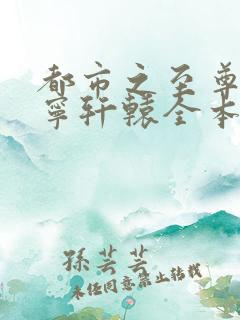 都市之至尊
宁轩辕全本
孫芸芸
未经同意禁止转载